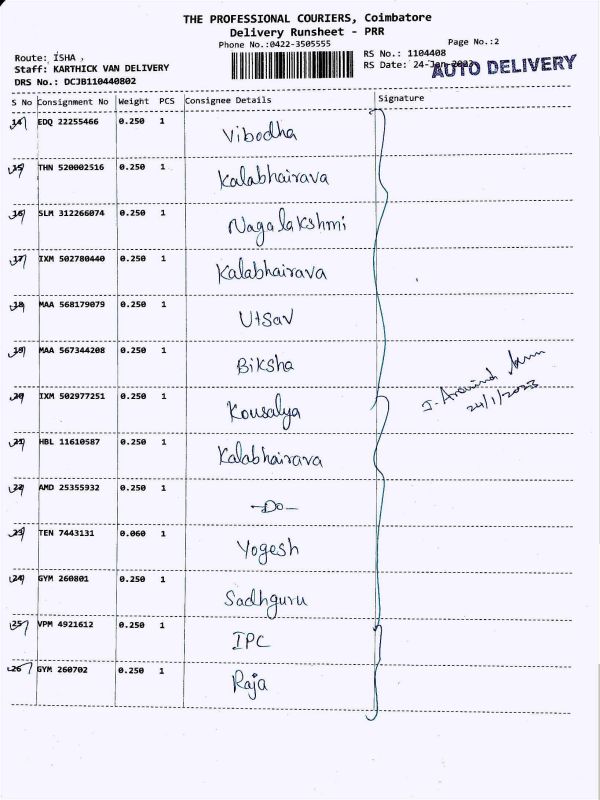 THE PROFESSIONAL COURIERS, Coimbatore
Delivery Runsheet - PRR
Phone No.:0422-3505555 Page No.:2
Route: ISHA , RS No.: 1104408
Staff: KARTHICK VAN DELIVERY RS Date: 24-Jan-2023
DRS No.: DCJB110440802 AUTO DELIVERY
S No Consignment No Weight PCS Consignee Details Signature
14 EDQ 22255466 0.250 1 Vibodha
15 THN 520002516 0.250 1 Kalabhairava
16 SLM 312266074 0.250 1 Nagalakshmi
17 IXM 502780440 0.250 1 Kalabhairava
18 MAA 568179079 0.250 1 Utsav
19 MAA 567344208 0.250 1 Biksha
J. Aravind
20 IXM 502977251 0.250 1 Kousalya 24/1/2023
21 HBL 11610587 0.250 1 Kalabhairava
22 AMD 25355932 0.250 1 -Do-
23 TEN 7443131 0.060 1 Yogesh
24 GYM 260801 0.250 1 Sadhguru
25 VPM 4921612 0.250 1 IPC
26 GYM 260702 0.250 1 Raja